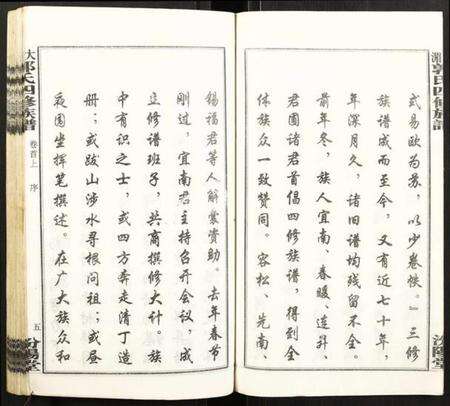 式易欧为苏，以少卷帙。』三修
族谱成而至今，又有近七十年，
年深月久，诸旧谱均残留不全。
前年冬，族人宜南、春暖、连升、
君圃诸君首倡四修族谱，得到全
体族众一致赞同。容松、先南、
锡福君等人解囊资助。去年春节
刚过，宜南君主持召开会议，成
立修谱班子，共商撰修大计。族
中有识之士，或四方奔走清丁造
册；或跋山涉水寻根问祖；或昼
夜围坐挥笔撰述。在广大族众和
郭氏四修族谱
汾阳堂
大郭氏四修族谱
卷首上 序
五
汾阳堂